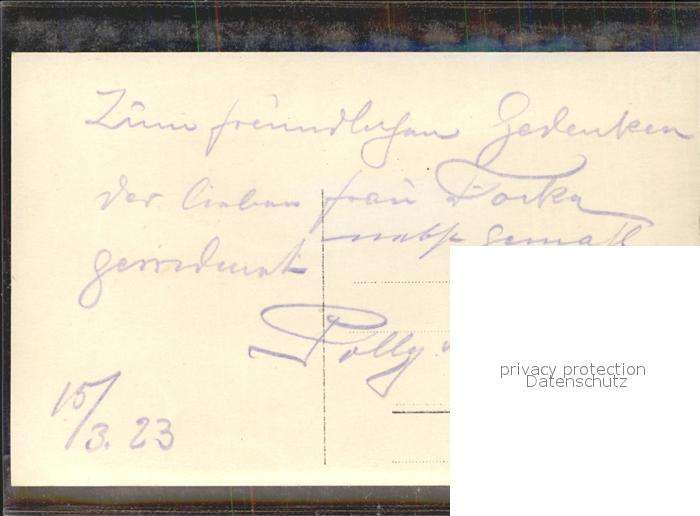 Zum freundlichen Gedenken
der lieben Frau Dorka
nebst Gemahl
gewidmet
Polly
15/3. 23
privacy protection
Datenschutz